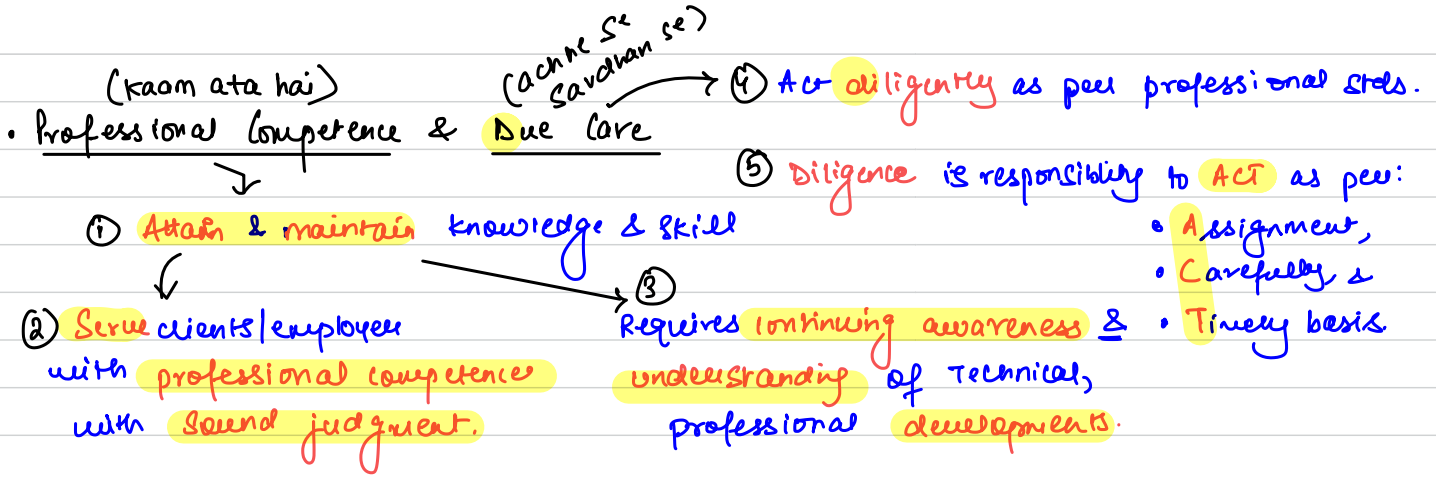 (kaam ata hai)
(achhe se
savdhan se)
• Professional Competence & Due Care
① Attain & maintain knowledge & skill
② Serve clients/employer
with professional competence
with sound judgment.
③
Requires continuing awareness &
understanding of Technical,
professional developments.
④ Act diligently as per professional stds.
⑤ Diligence is responsibility to ACT as per:
• Assignment,
• Carefully, &
• Timely basis.